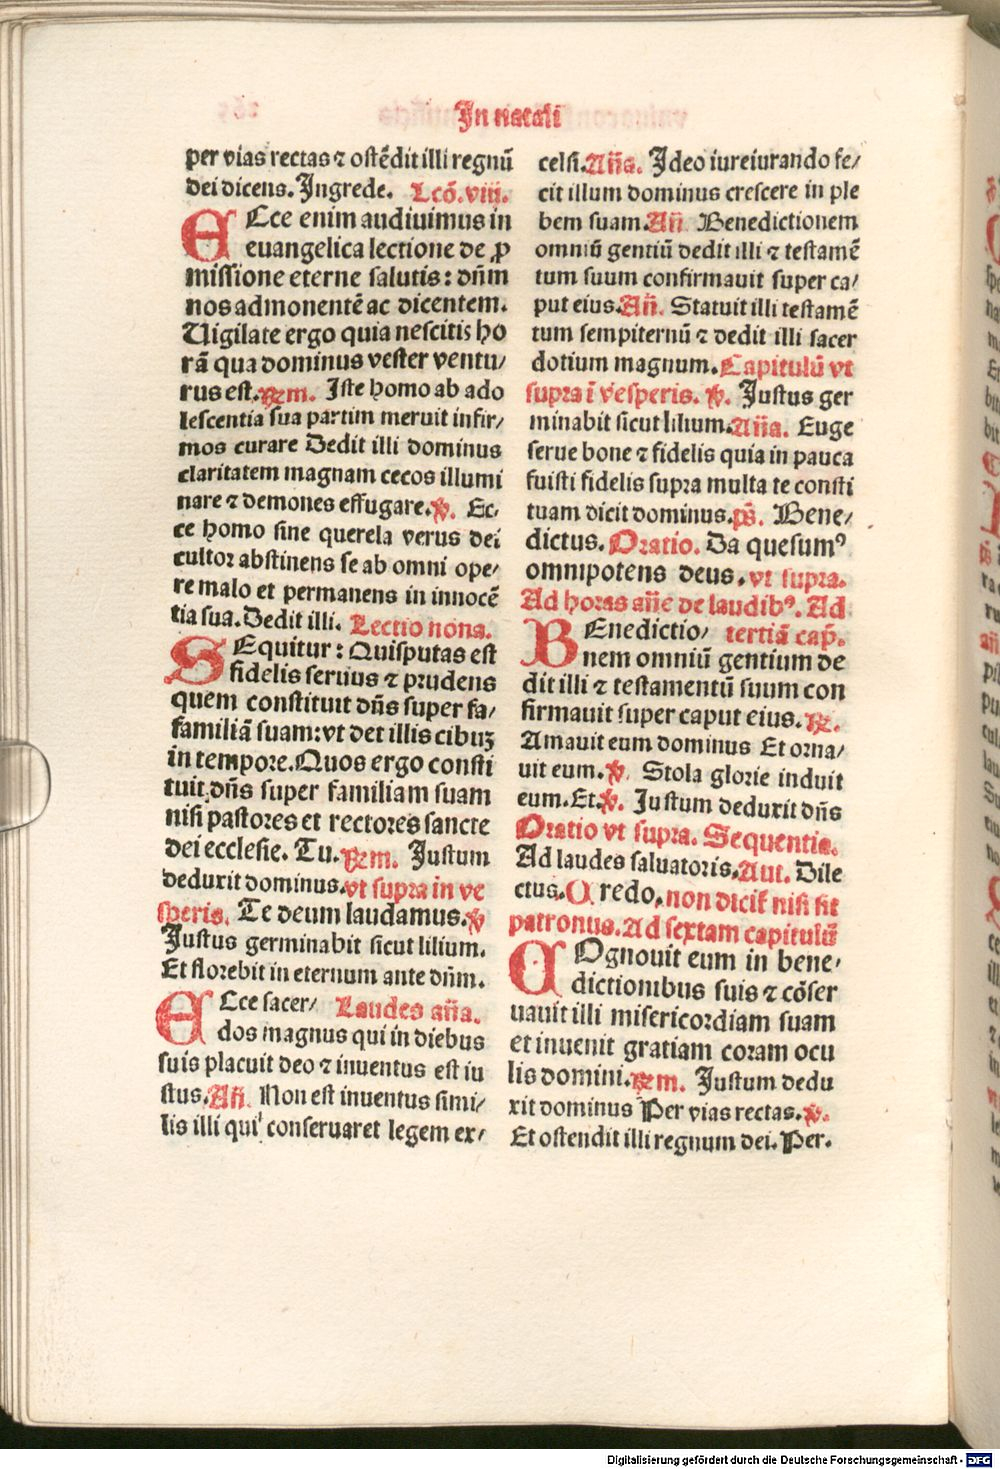 In natali
per vias rectas ⁊ ostēdit illi regnū
dei dicens. Ingrede. Lcō. viii.
ECce enim audiuimus in
euangelica lectione de ꝓ
missione eterne salutis: dn̄m
nos admonentē ac dicentem.
Uigilate ergo quia nescitis ho
rā qua dominus vester ventu/
rus est. ℞m. Iste homo ab ado
lescentia sua partim meruit infir/
mos curare Dedit illi dominus
claritatem magnam cecos illumi
nare ⁊ demones effugare. ℣. Ec-
ce homo sine querela verus dei
cultor abstinens se ab omni ope/
re malo et permanens in innocē
tia sua. Dedit illi. Lectio nona.
SEquitur: Quis putas est
fidelis seruus ⁊ prudens
quem constituit dn̄s super fa/
familiā suam: vt det illis cibuꝫ
in tempore. Quos ergo consti
tuit dn̄s super familiam suam
nisi pastores et rectores sancte
dei ecclesie. Tu. ℞m. Justum
deduxit dominus. vt supra in ve
speris. Te deum laudamus. ℣
Justus germinabit sicut lilium.
Et florebit in eternum ante dn̄m.
ECce sacer/ Laudes an̄a.
dos magnus qui in diebus
suis placuit deo ⁊ inuentus est iu
stus. An̄. Non est inuentus simi/
lis illi qui conseruaret legem ex/
celsi. An̄a. Ideo iureiurando fe/
cit illum dominus crescere in ple
bem suam. An̄ Benedictionem
omniū gentiū dedit illi ⁊ testamē
tum suum confirmauit super ca/
put eius. An̄. Statuit illi testamē
tum sempiternū ⁊ dedit illi sacer
dotium magnum. Capitulū vt
supra ī vesperis. ℣. Justus ger
minabit sicut lilium. An̄a. Euge
serue bone ⁊ fidelis quia in pauca
fuisti fidelis supra multa te consti
tuam dicit dominus. ps̄. Bene/
dictus. Oratio. Da quesumꝰ
omnipotens deus. vt supra.
Ad horas an̄e de laudibꝰ. Ad
BEnedictio/ tertiā cap̄.
nem omniū gentium de
dit illi ⁊ testamentū suum con
firmauit super caput eius. ℞.
Amauit eum dominus Et orna/
uit eum. ℣. Stola glorie induit
eum. Et. ℣. Justum deduxit dn̄s
Oratio vt supra. Sequentia.
Ad laudes saluatoris. Aut. Dile
ctus. Credo, non dicit̄ nisi sit
patronus. Ad sextam capitulū
COgnouit eum in bene/
dictionibus suis ⁊ cōser
uauit illi misericordiam suam
et inuenit gratiam coram ocu
lis domini. ℞m. Justum dedu
xit dominus Per vias rectas. ℣.
Et ostendit illi regnum dei. Per.
Digitalisierung gefördert durch die Deutsche Forschungsgemeinschaft - DFG